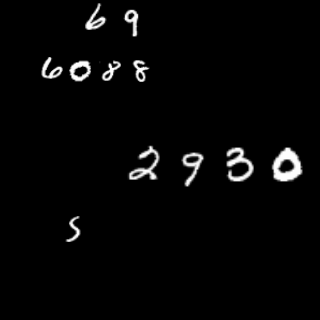 69
6088
2930
5